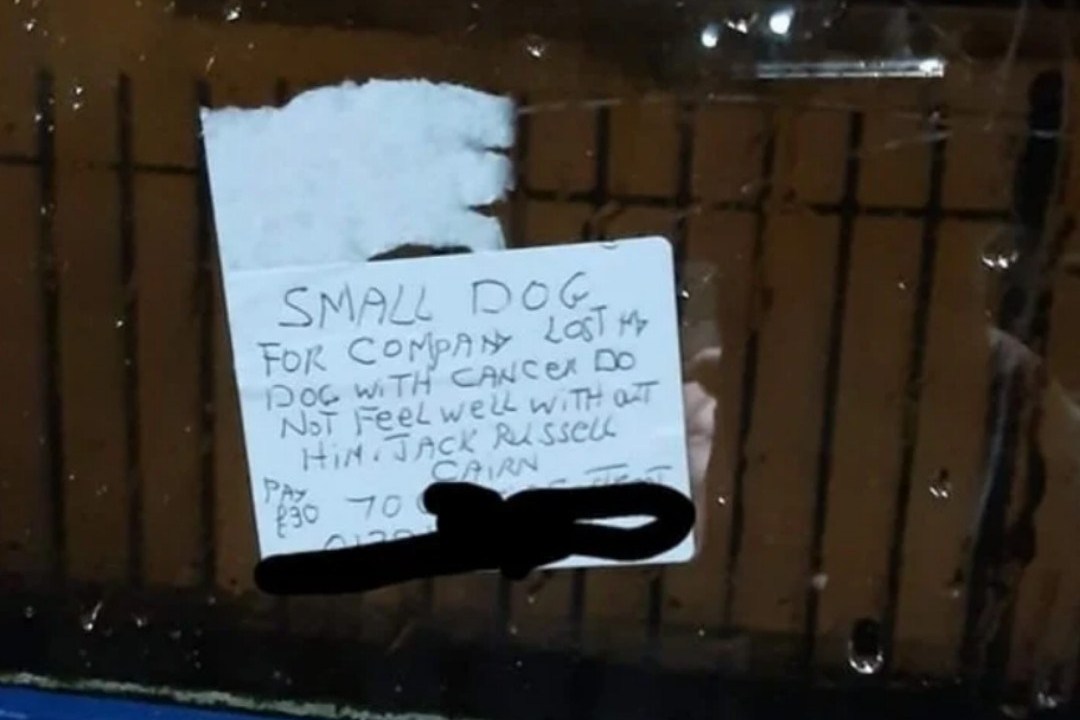 SMALL DOG
FOR COMPANY LOST MY
DOG WITH CANCER DO
NOT FEEL WELL WITH OUT
HIM. JACK RUSSELL
CAIRN
PAY
£30 70